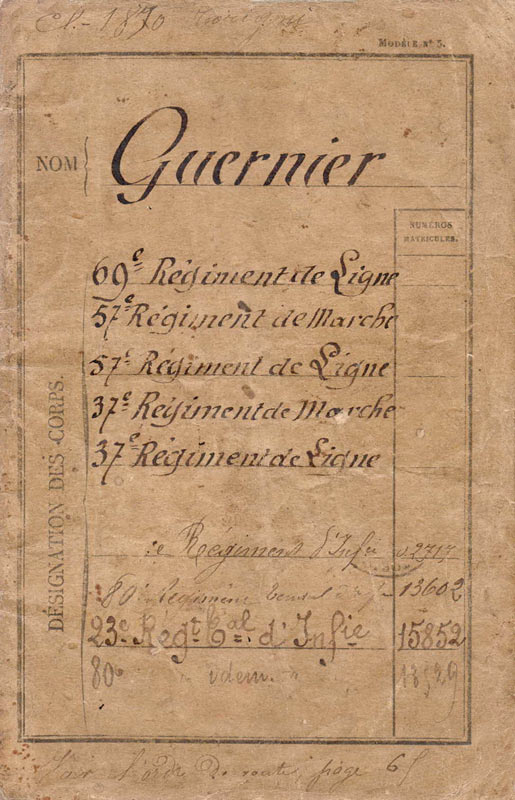 Cl. 1870
MODÈLE Nº 5.
NOM
Guernier
NUMÉROS
MATRICULES.
DÉSIGNATION DES CORPS.
69e Régiment de Ligne
57e Régiment de Marche
57e Régiment de Ligne
37e Régiment de Marche
37e Régiment de Ligne
e Régiment d'Infie 2717
80e Régiment 13602
23e Régt Cal d'Infie 15852
80e idem
Voir l'ordre de route, page 65